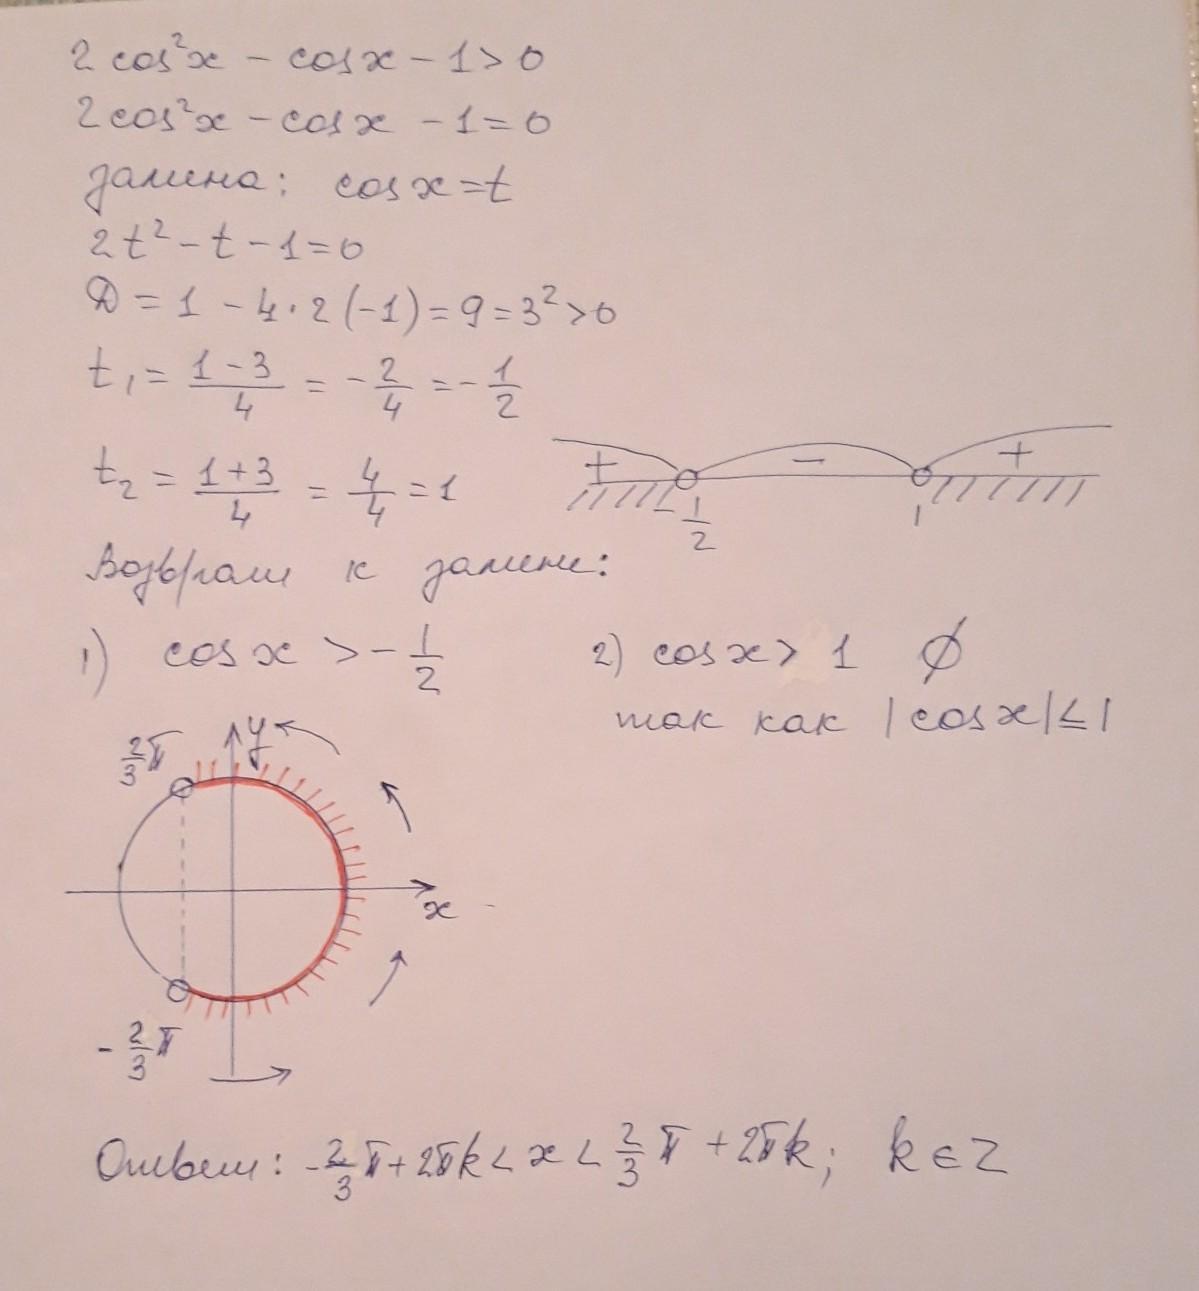 2cos²x - cosx - 1 > 0
2cos²x - cosx - 1 = 0
замена: cosx = t
2t² - t - 1 = 0
D = 1 - 4·2(-1) = 9 = 3² > 0
t₁ = (1-3)/4 = -2/4 = -1/2
t₂ = (1+3)/4 = 4/4 = 1
+ - +
1/2 1
Возврат к замене:
1) cosx > -1/2 2) cosx > 1 ∅
так как |cosx| ≤ 1
2/3 π y
x
-2/3 π
Ответ: -2/3 π + 2πk < x < 2/3 π + 2πk; k ∈ Z